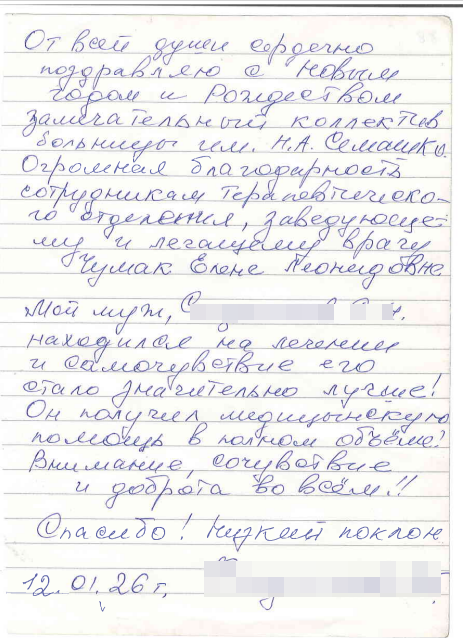 От всей души сердечно
поздравляю с Новым
годом и Рождеством
замечательный коллектив
больницы им. Н.А. Семашко.
Огромная благодарность
сотрудникам терапевтическо-
го отделения, заведующе-
му и лечащему врачу
Чумак Елене Леонидовне
Мой муж, С
находился на лечении
и самочувствие его
стало значительно лучше!
Он получил медицинскую
помощь в полном объёме!
Внимание, сочувствие
и доброта во всём!!
Спасибо! Низкий поклон
12.01.26 г.